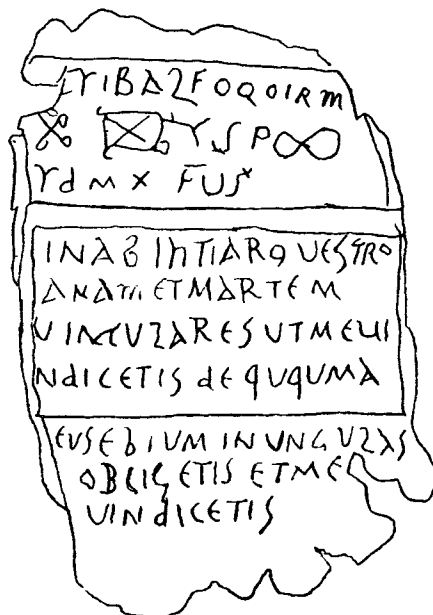 YIBAZFOQOIRM
YSP∞
YdMX FUSˣ
INAB IhTIARQ UESTRO
ANATh ETMARTEM
UINCUZARES UTMEUI
NDICETIS dE QUQUMA
EUSEBIUM IN UNGUZAS
OBLIGETIS ETME
UINdICETIS